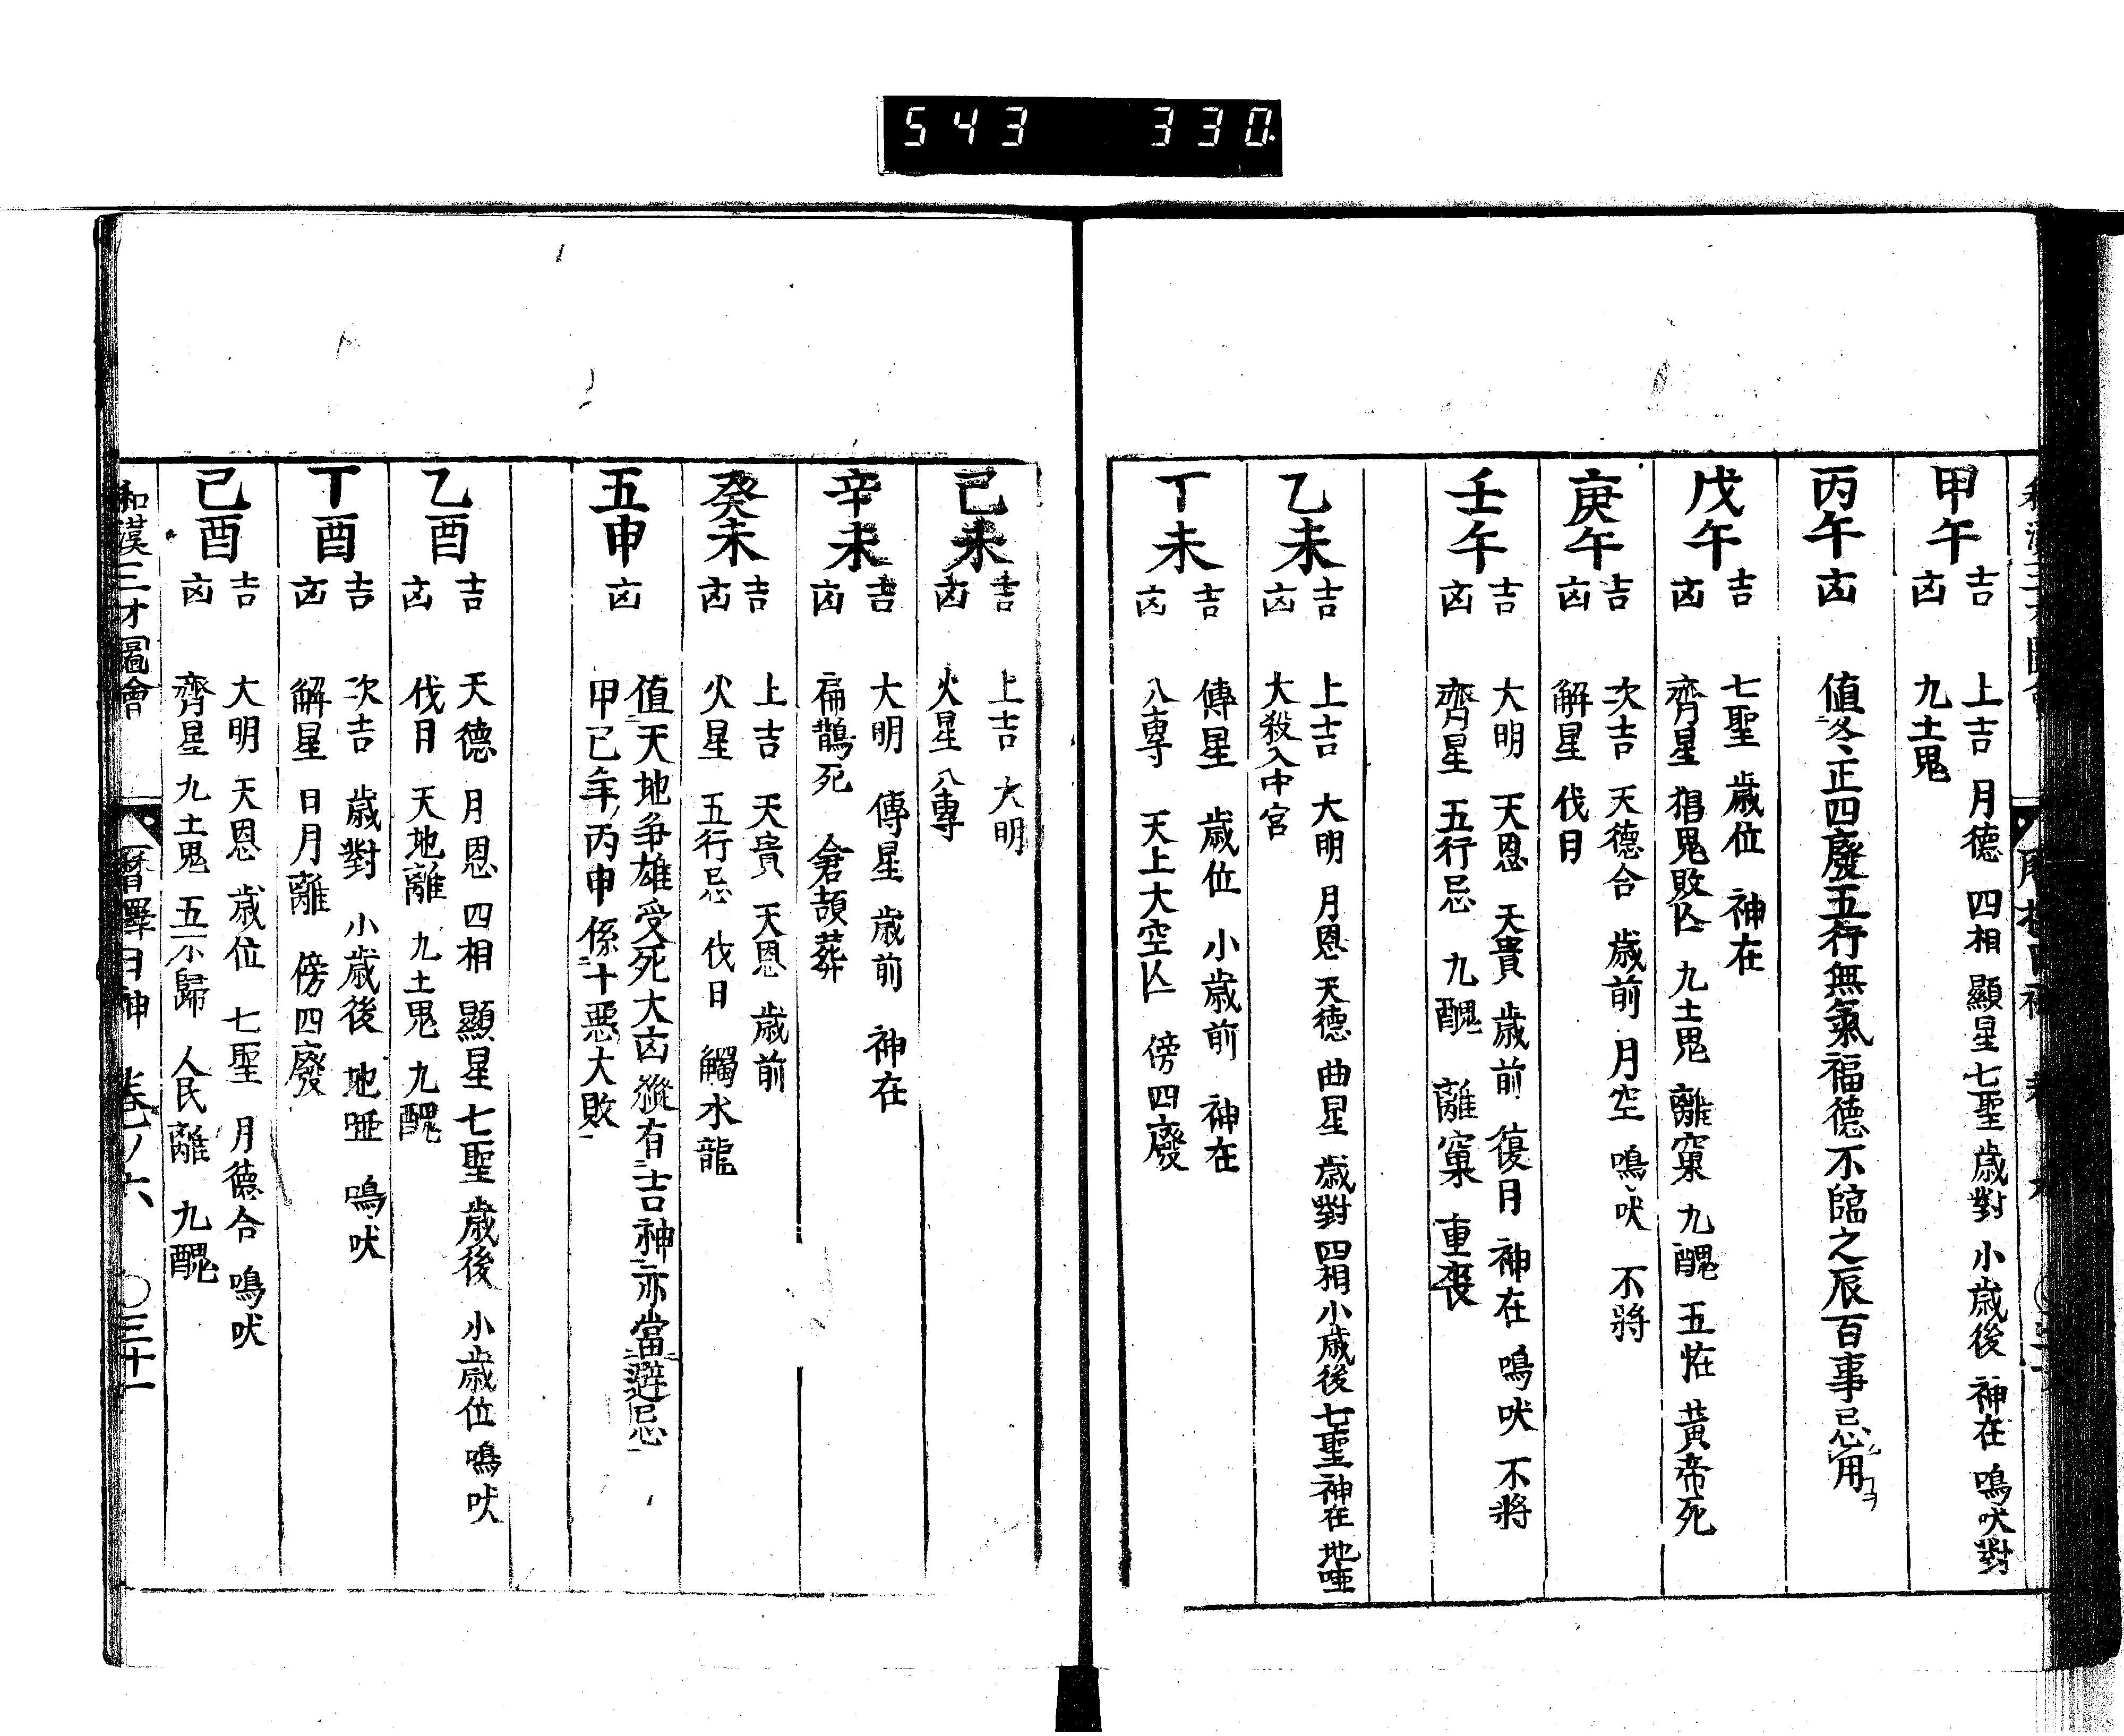 543 330
甲午
吉 上吉 月德 四相 顯星 七聖 歲對 小歲後 神在 鳴吠對
凶 九土鬼
丙午
凶 値冬正四廢五行無氣福德不臨之辰百事忌用
戊午
吉 七聖 歲位 神在
凶 齊星 猖鬼敗亾 九土鬼 離窠 九醜 五㽵 黃帝死
庚午
吉 次吉 天德合 歲前 月空 鳴吠 不將
凶 解星 伐日
壬午
吉 大明 天恩 天貴 歲前 復月 神在 鳴吠 不將
凶 齊星 五行忌 九醜 離窠 重喪
乙未
吉 上吉 大明 月恩 天德 曲星 歲對 四相 小歲後 七聖 神在 地啞
凶 大殺入中宮
丁未
吉 傳星 歲位 小歲前 神在
凶 八專 天上大空亾 傍四廢
己未
吉 上吉 大明
凶 火星 八專
辛未
吉 大明 傳星 歲前 神在
凶 扁鵲死 倉頡葬
癸未
吉 上吉 天貴 天恩 歲前
凶 火星 五行忌 伐日 觸水龍
五申
凶 値天地争雄受死大凶縱有吉神亦當避忌
甲己年丙申係十惡大敗
乙酉
吉 天德 月恩 四相 顯星 七聖 歲後 小歲位 鳴吠
凶 伐日 天地離 九土鬼 九醜
丁酉
吉 次吉 歲對 小歲後 地啞 鳴吠
凶 解星 日月離 傍四廢
己酉
吉 大明 天恩 歲位 七聖 月德合 鳴吠
凶 齊星 九土鬼 五不歸 人民離 九醜
和漢三才圖會 曆擇日神 卷ノ六 〇三十一